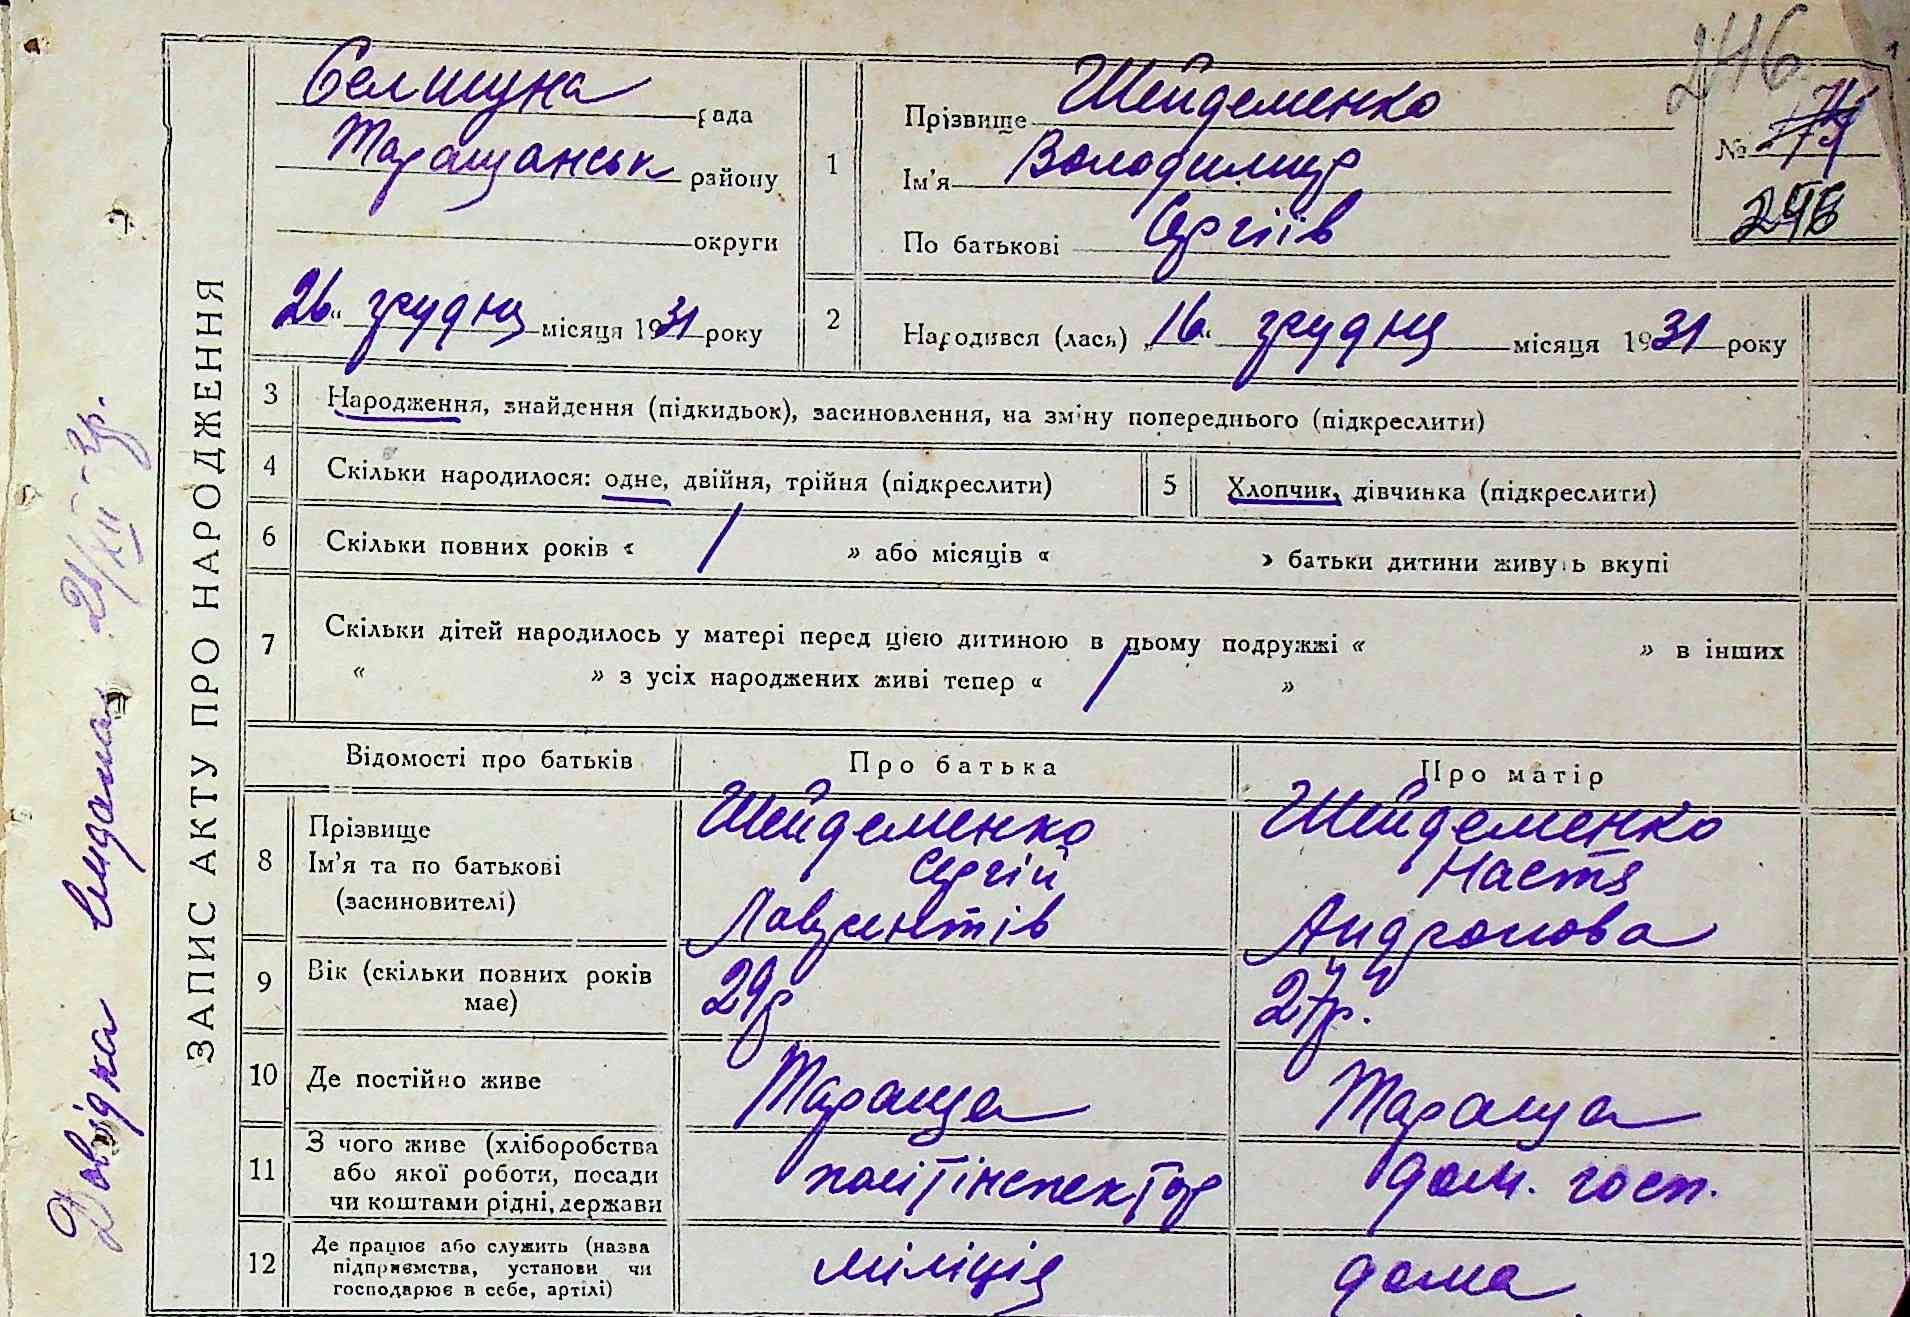 246
Селищна рада
Таращанськ району
округи
26 „ грудня місяця 1931 року
1
Прізвище Шейдеменко
Ім'я Володимир
По батькові Сергіїв
№
246
2
Народився (лась) „ 16 “ грудня місяця 1931 року
ЗАПИС АКТУ ПРО НАРОДЖЕННЯ
Довідка видана 26/XII-31р.
3 Народження, знайдення (підкидьок), засиновлення, на зміну попереднього (підкреслити)
4 Скільки народилося: одне, двійня, трійня (підкреслити)
5 Хлопчик, дівчинка (підкреслити)
6 Скільки повних років « / » або місяців « » батьки дитини живуть вкупі
7 Скільки дітей народилось у матері перед цією дитиною в цьому подружжі « » в інших
« » з усіх народжених живі тепер « / »
Відомості про батьків
Про батька
Про матір
8
Прізвище
Ім'я та по батькові
(засиновителі)
Шейдеменко
Сергій
Лаврентів
Шейдеменко
Настя
Андронова
9
Вік (скільки повних років
має)
29р
27р.
10 Де постійно живе
Тараща
Тараща
11
З чого живе (хліборобства
або якої роботи, посади
чи коштами рідні, держави
політінспектор
дом. госп.
12
Де працює або служить (назва
підприємства, установи чи
господарює в себе, артілі)
міліція
дома